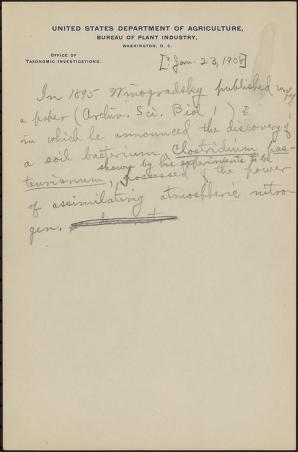 UNITED STATES DEPARTMENT OF AGRICULTURE,
BUREAU OF PLANT INDUSTRY,
WASHINGTON, D. C.
OFFICE OF
TAXONOMIC INVESTIGATIONS.
[Jan. 23, 1908]
In 1895 Winogradsky published
a paper (Archiv. Sci. Biol
in which he announced the discovery of
a soil bacterium, Clostridium pas-
shown by his experiments to be
teurianum, possessed of the power
of assimilating atmospheric nitro-
gen.